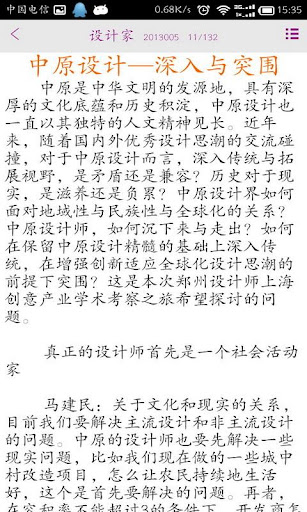 中国电信 0.68K/s 15:35
设计家 2013005 11/132
中原设计—深入与突围
中原是中华文明的发源地，具有深
厚的文化底蕴和历史积淀，中原设计也
一直以其独特的人文精神见长。近年
来，随着国内外优秀设计思潮的交流碰
撞，对于中原设计而言，深入传统与拓
展视野，是矛盾还是兼容？历史对于现
实，是滋养还是负累？中原设计界如何
面对地域性与民族性与全球化的关系？
中原设计师，如何沉下来与走出？如何
在保留中原设计精髓的基础上深入传
统，在增强创新适应全球化设计思潮的
前提下突围？这是本次郑州设计师上海
创意产业学术考察之旅希望探讨的问
题。
真正的设计师首先是一个社会活动
家
马建民：关于文化和现实的关系，
目前我们要解决主流设计和非主流设计
的问题。中原的设计师也要先解决一些
现实问题，比如我们现在做的一些城中
村改造项目，怎么让农民持续地生活
好，这个是首先要解决的问题。再者，
在容积率不能超过3的条件下，开发商怎